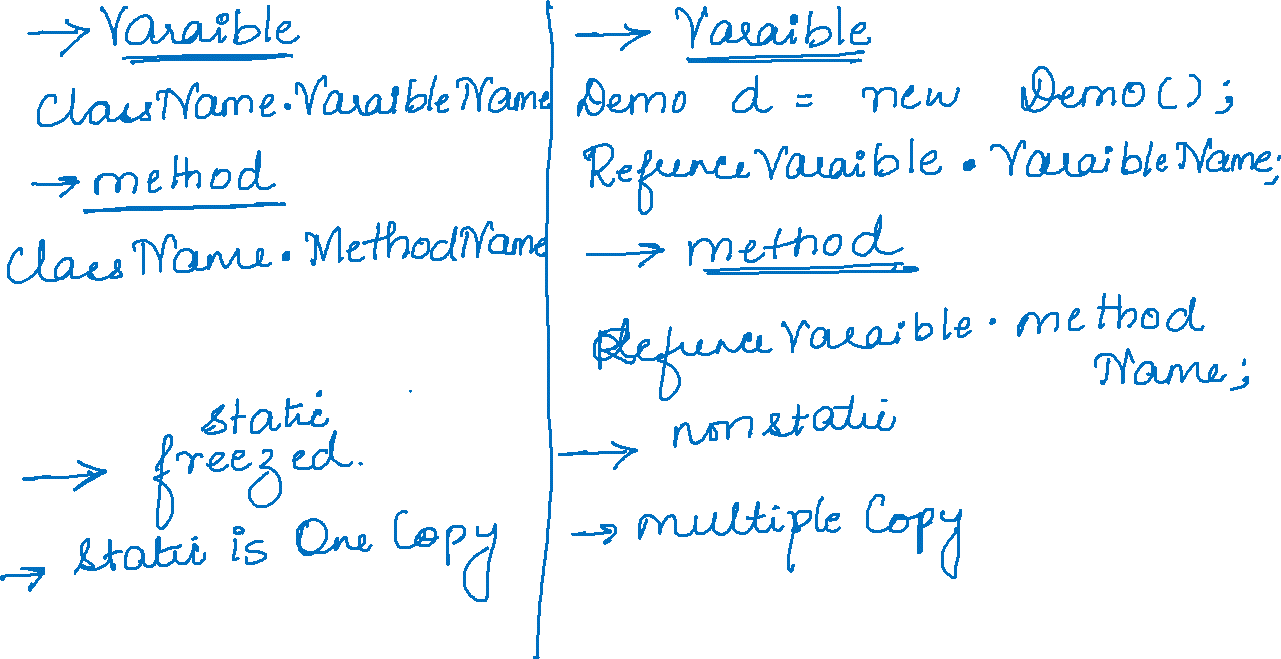 → Varaible
ClassName.VaraibleName
→ method
ClassName.MethodName
static
→ freezed.
→ Static is One Copy
→ Varaible
Demo d = new Demo();
RefrenceVaraible.VaraibleName;
→ method
RefrenceVaraible.method
Name;
→ nonstatic
→ multiple Copy